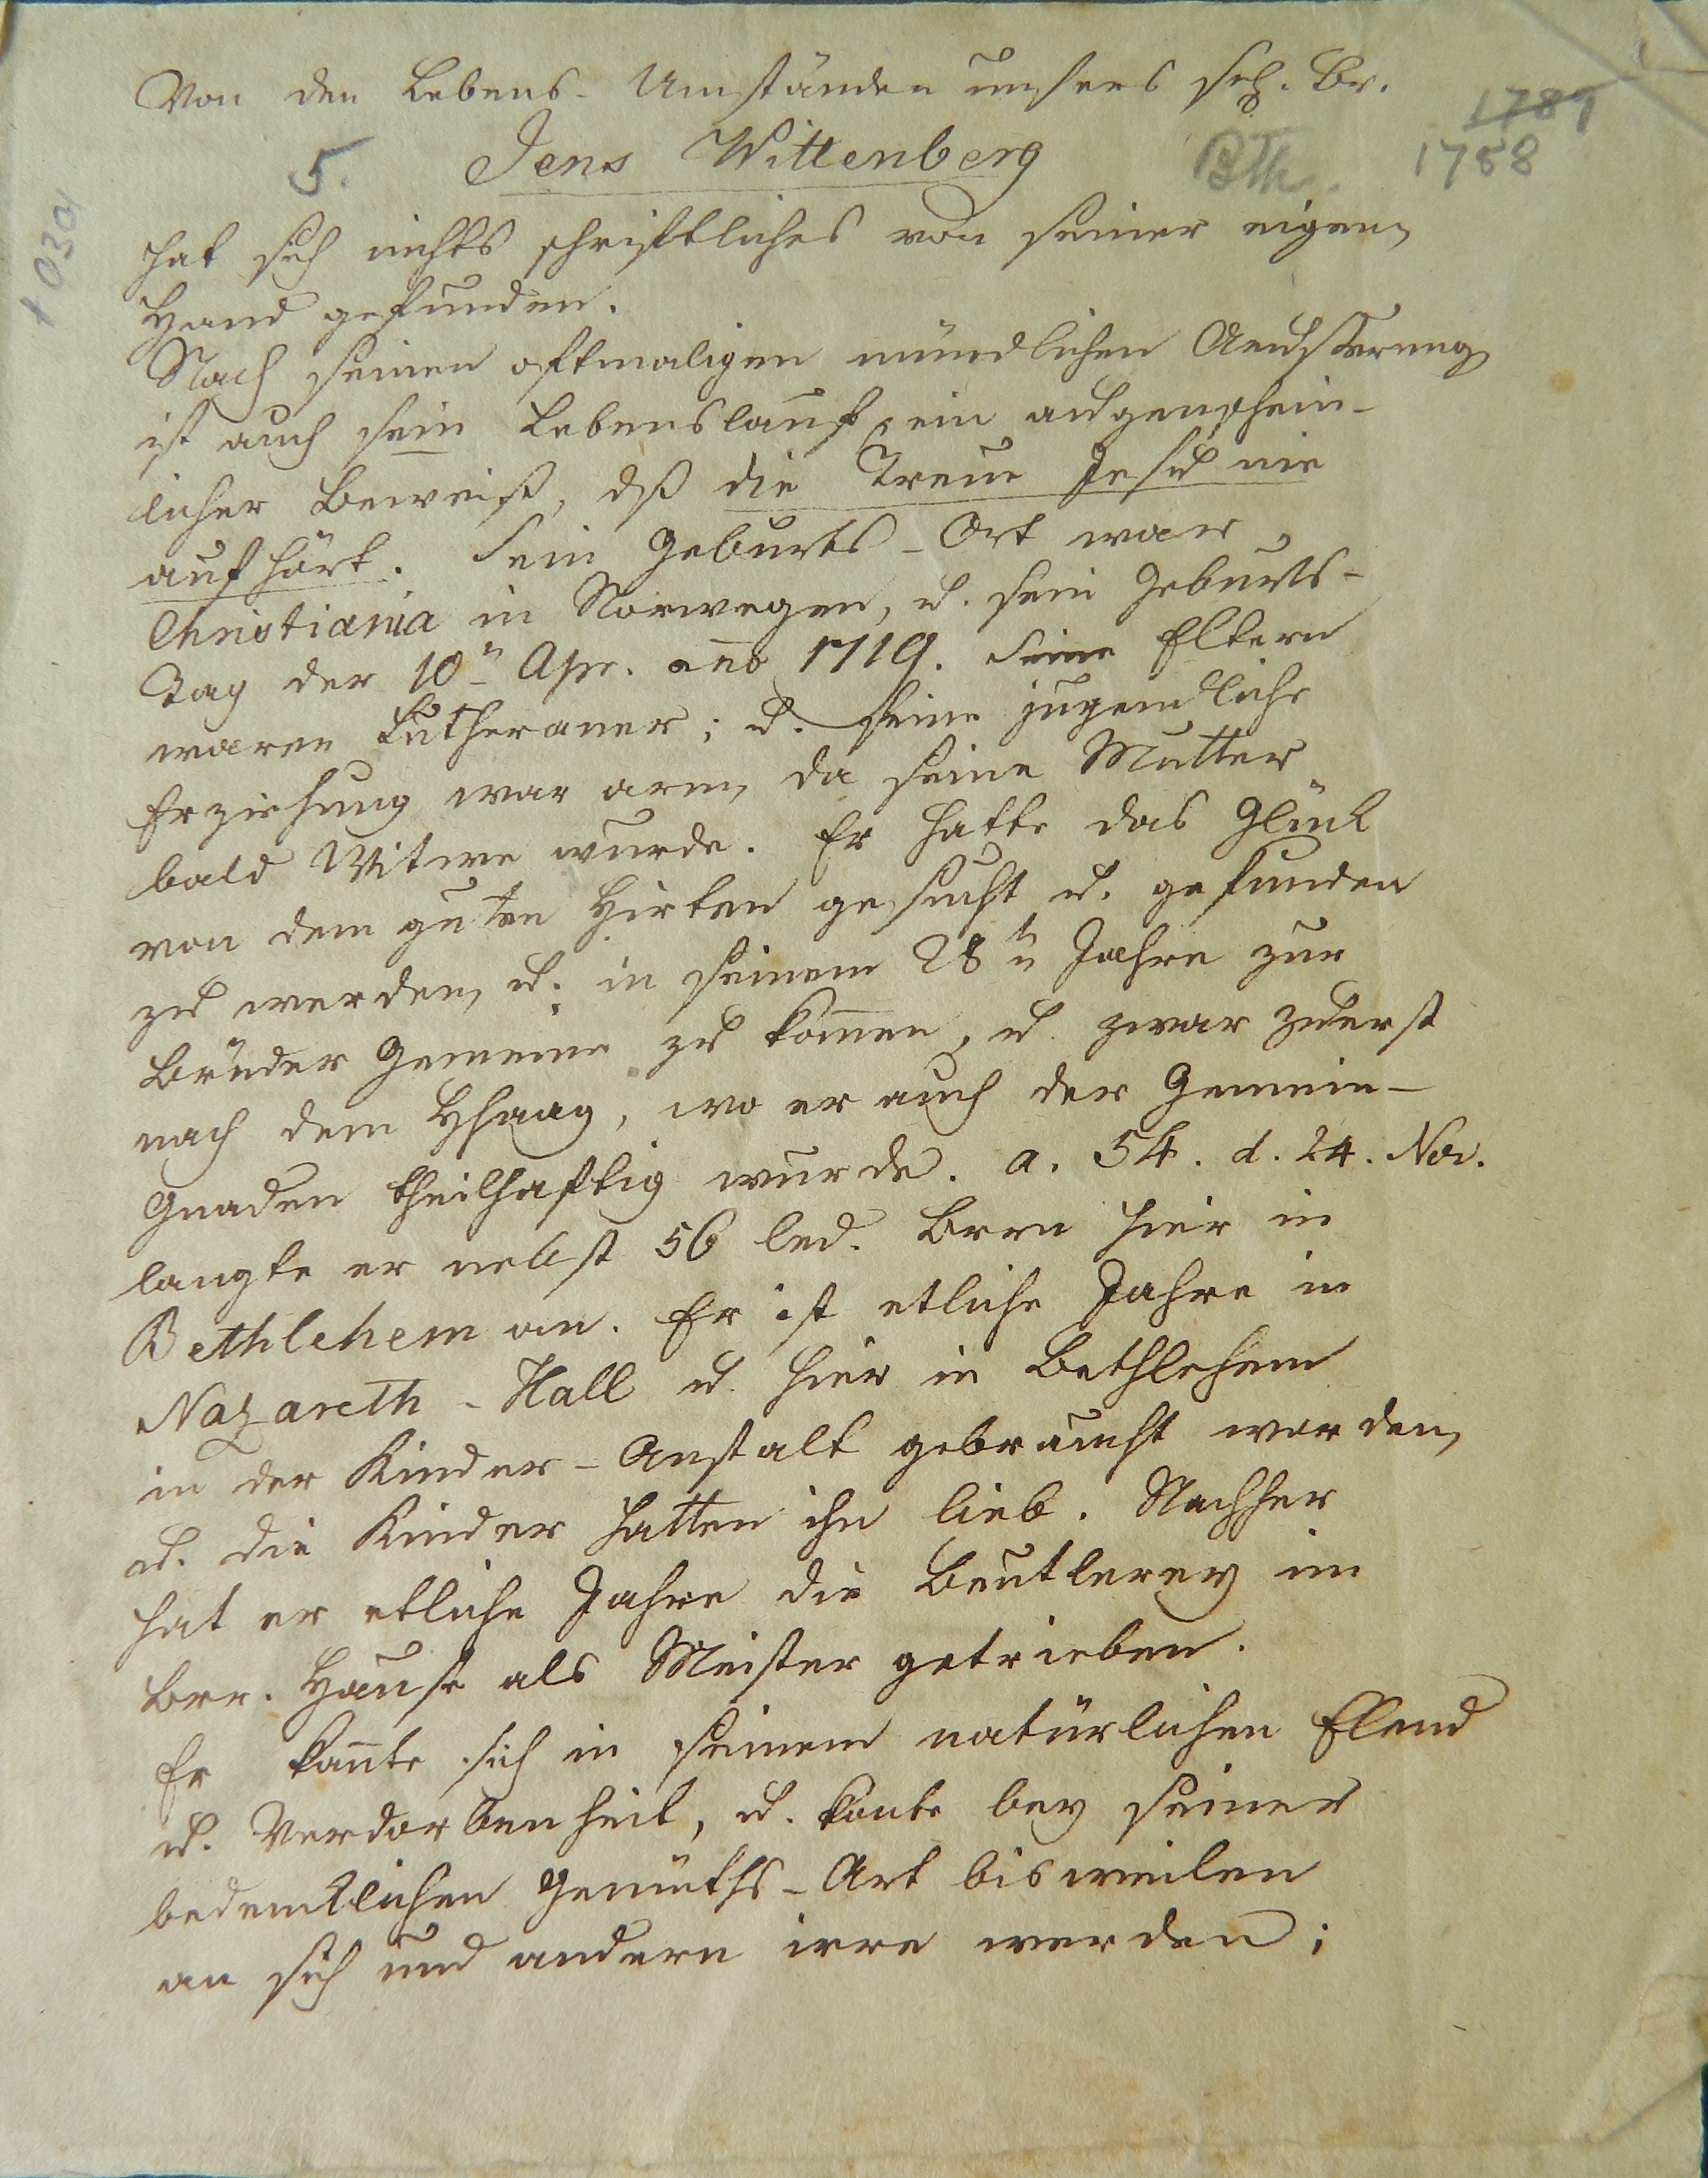 Von den Lebens-Umständen unsers sel. Br.
1789
5. Jens Wittenberg BTh. 1788
hat sich nichts schriftliches von seiner eigen
Hand gefunden.
Nach seinen oftmaligen mündlichen Aeusserung
ist auch sein Lebenslauf, ein augenschein-
licher Beweiß, dß die Treue Jesu nie
aufhört. Sein Geburts-Ort war
Christiania in Norwegen, u. sein Geburts-
Tag der 10n Apr. ano 1719. Seine Eltern
waren Lutheraner; u. seine jugendliche
Erziehung war arm, da seine Mutter
bald Witwe wurde. Er hatte das Glück
von dem guten Hirten gesucht u. gefunden
zu werden, u. in seinem 28tn Jahre zur
Brüder Gemeine zu kom̄en, u. zwar zuerst
nach dem Hhaag, wo er auch der Gemein-
Gnaden theilhaftig wurde. a. 54. d. 24. Nov.
langte er nebst 56 led. Brrn hier in
Bethlehem an. Er ist etliche Jahre in
Nazareth-Hall u. hier in Bethlehem
in der Kinder-Anstalt gebraucht worden,
u. die Kinder hatten ihn lieb. Nachher
hat er etliche Jahre die Beutlerey im
Brr. Hause als Meister getrieben.
Er kan̄te sich in seinem natürlichen Elend
u. Verdorbenheit, u. konte bey seiner
bedenklichen Gemüths-Art bisweilen
an sich und andern irre werden;